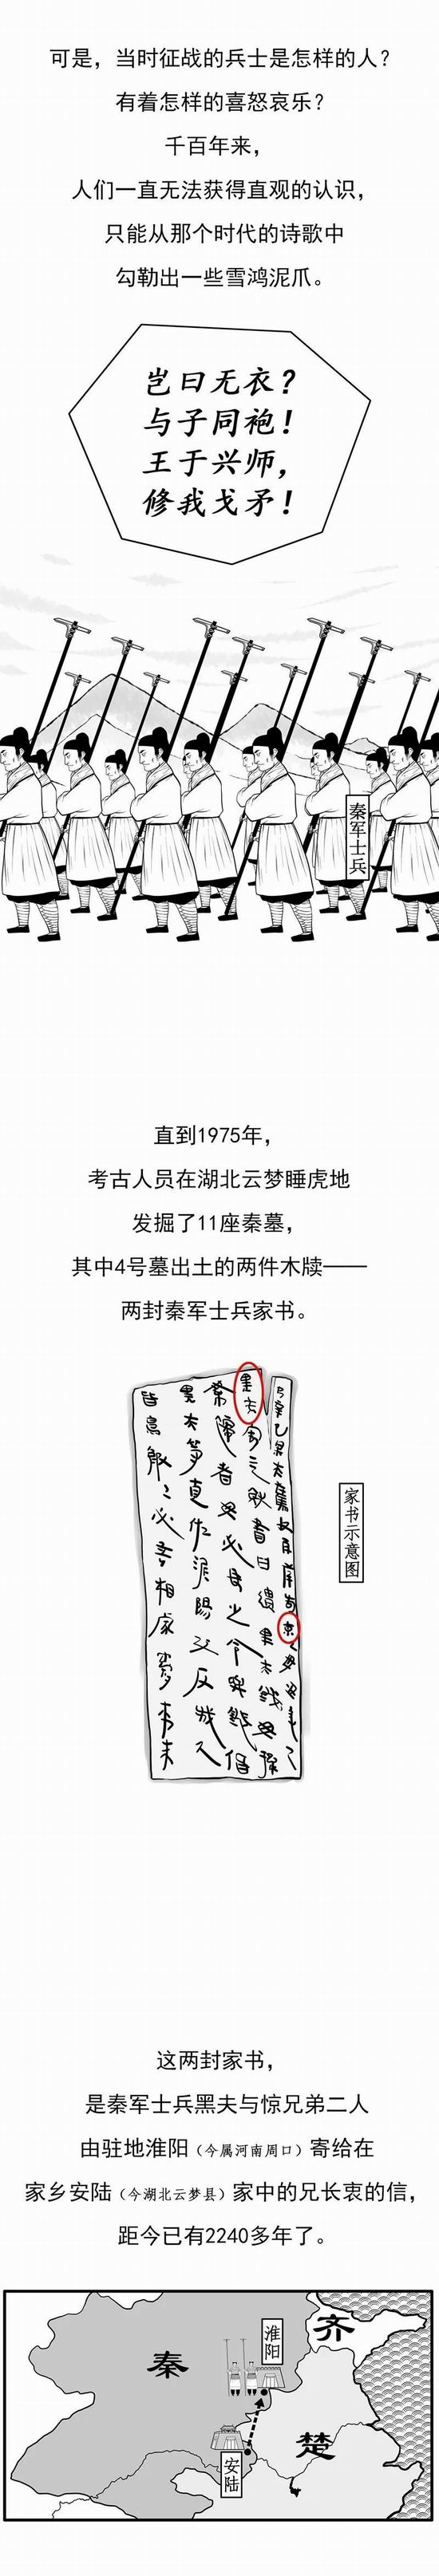 可是，当时征战的兵士是怎样的人？
有着怎样的喜怒哀乐？
千百年来，
人们一直无法获得直观的认识，
只能从那个时代的诗歌中
勾勒出一些雪鸿泥爪。
岂曰无衣？
与子同袍！
王于兴师，
修我戈矛！
秦军士兵
直到1975年，
考古人员在湖北云梦睡虎地
发掘了11座秦墓，
其中4号墓出土的两件木牍——
两封秦军士兵家书。
家书示意图
这两封家书，
是秦军士兵黑夫与惊兄弟二人
由驻地淮阳（今属河南周口）寄给在
家乡安陆（今湖北云梦县）家中的兄长衷的信，
距今已有2240多年了。
秦
淮阳
齐
楚
安陆